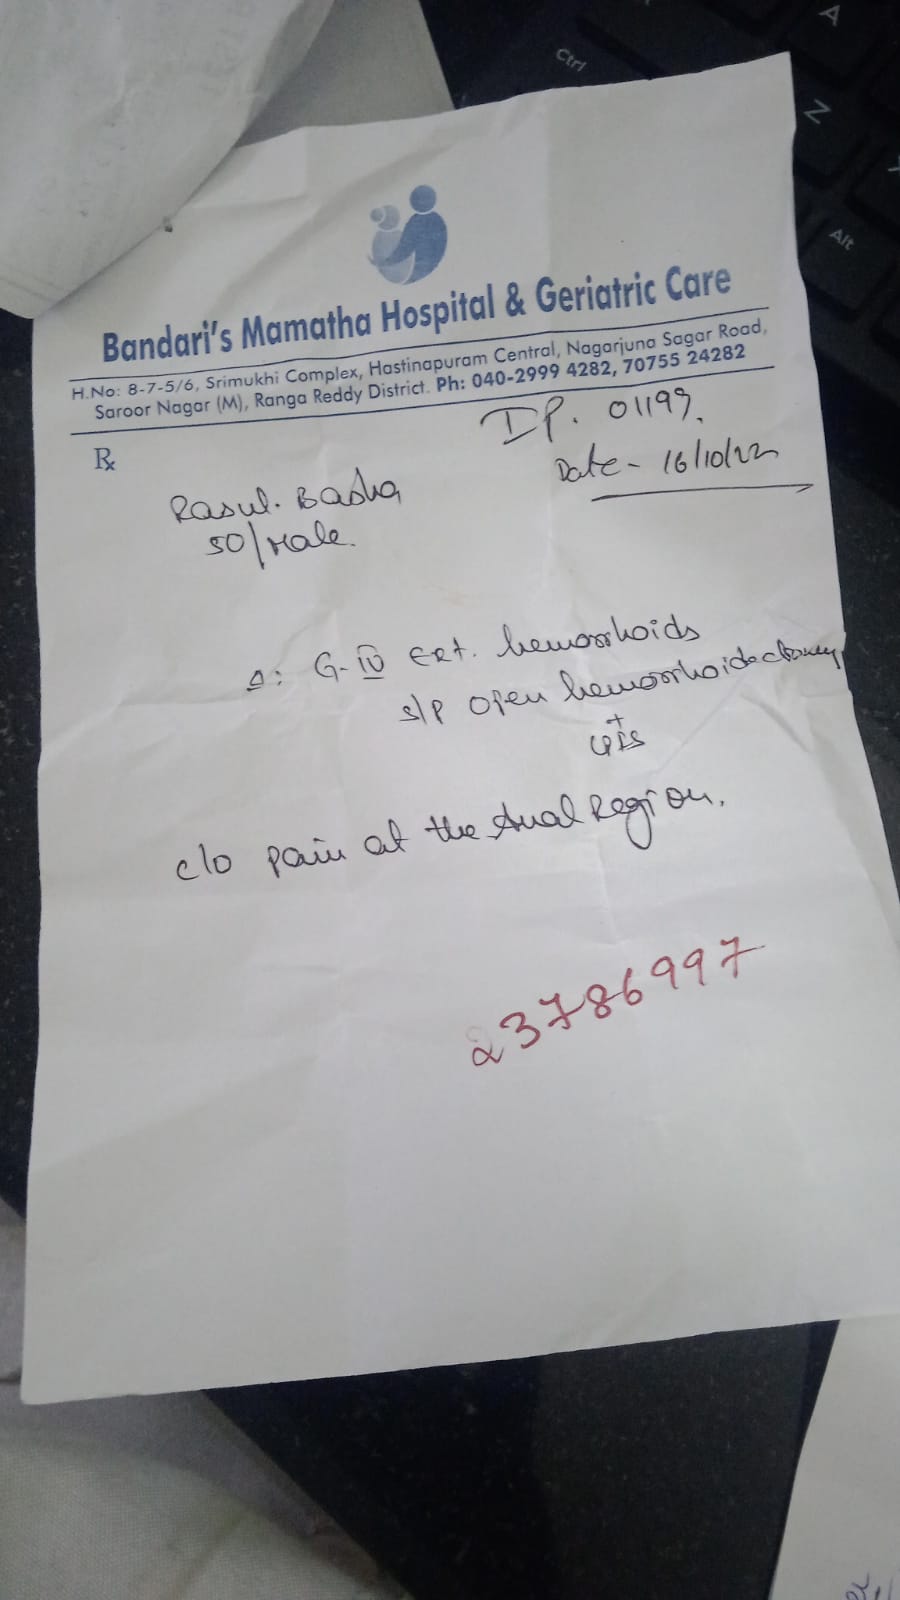 Bandari's Mamatha Hospital & Geriatric Care
H.No: 8-7-5/6, Srimukhi Complex, Hastinapuram Central, Nagarjuna Sagar Road,
Saroor Nagar (M), Ranga Reddy District. Ph: 040-2999 4282, 70755 24282
Rx
IP. 01199.
Date - 16/10/22
Rasul. Basha
50/Male.
Δ: G-IV Ext. hemorrhoids
s/p open hemorrhoidectomy
+
c/o pain at the Anal Region.
23786997
Ctrl
A
Z
Alt